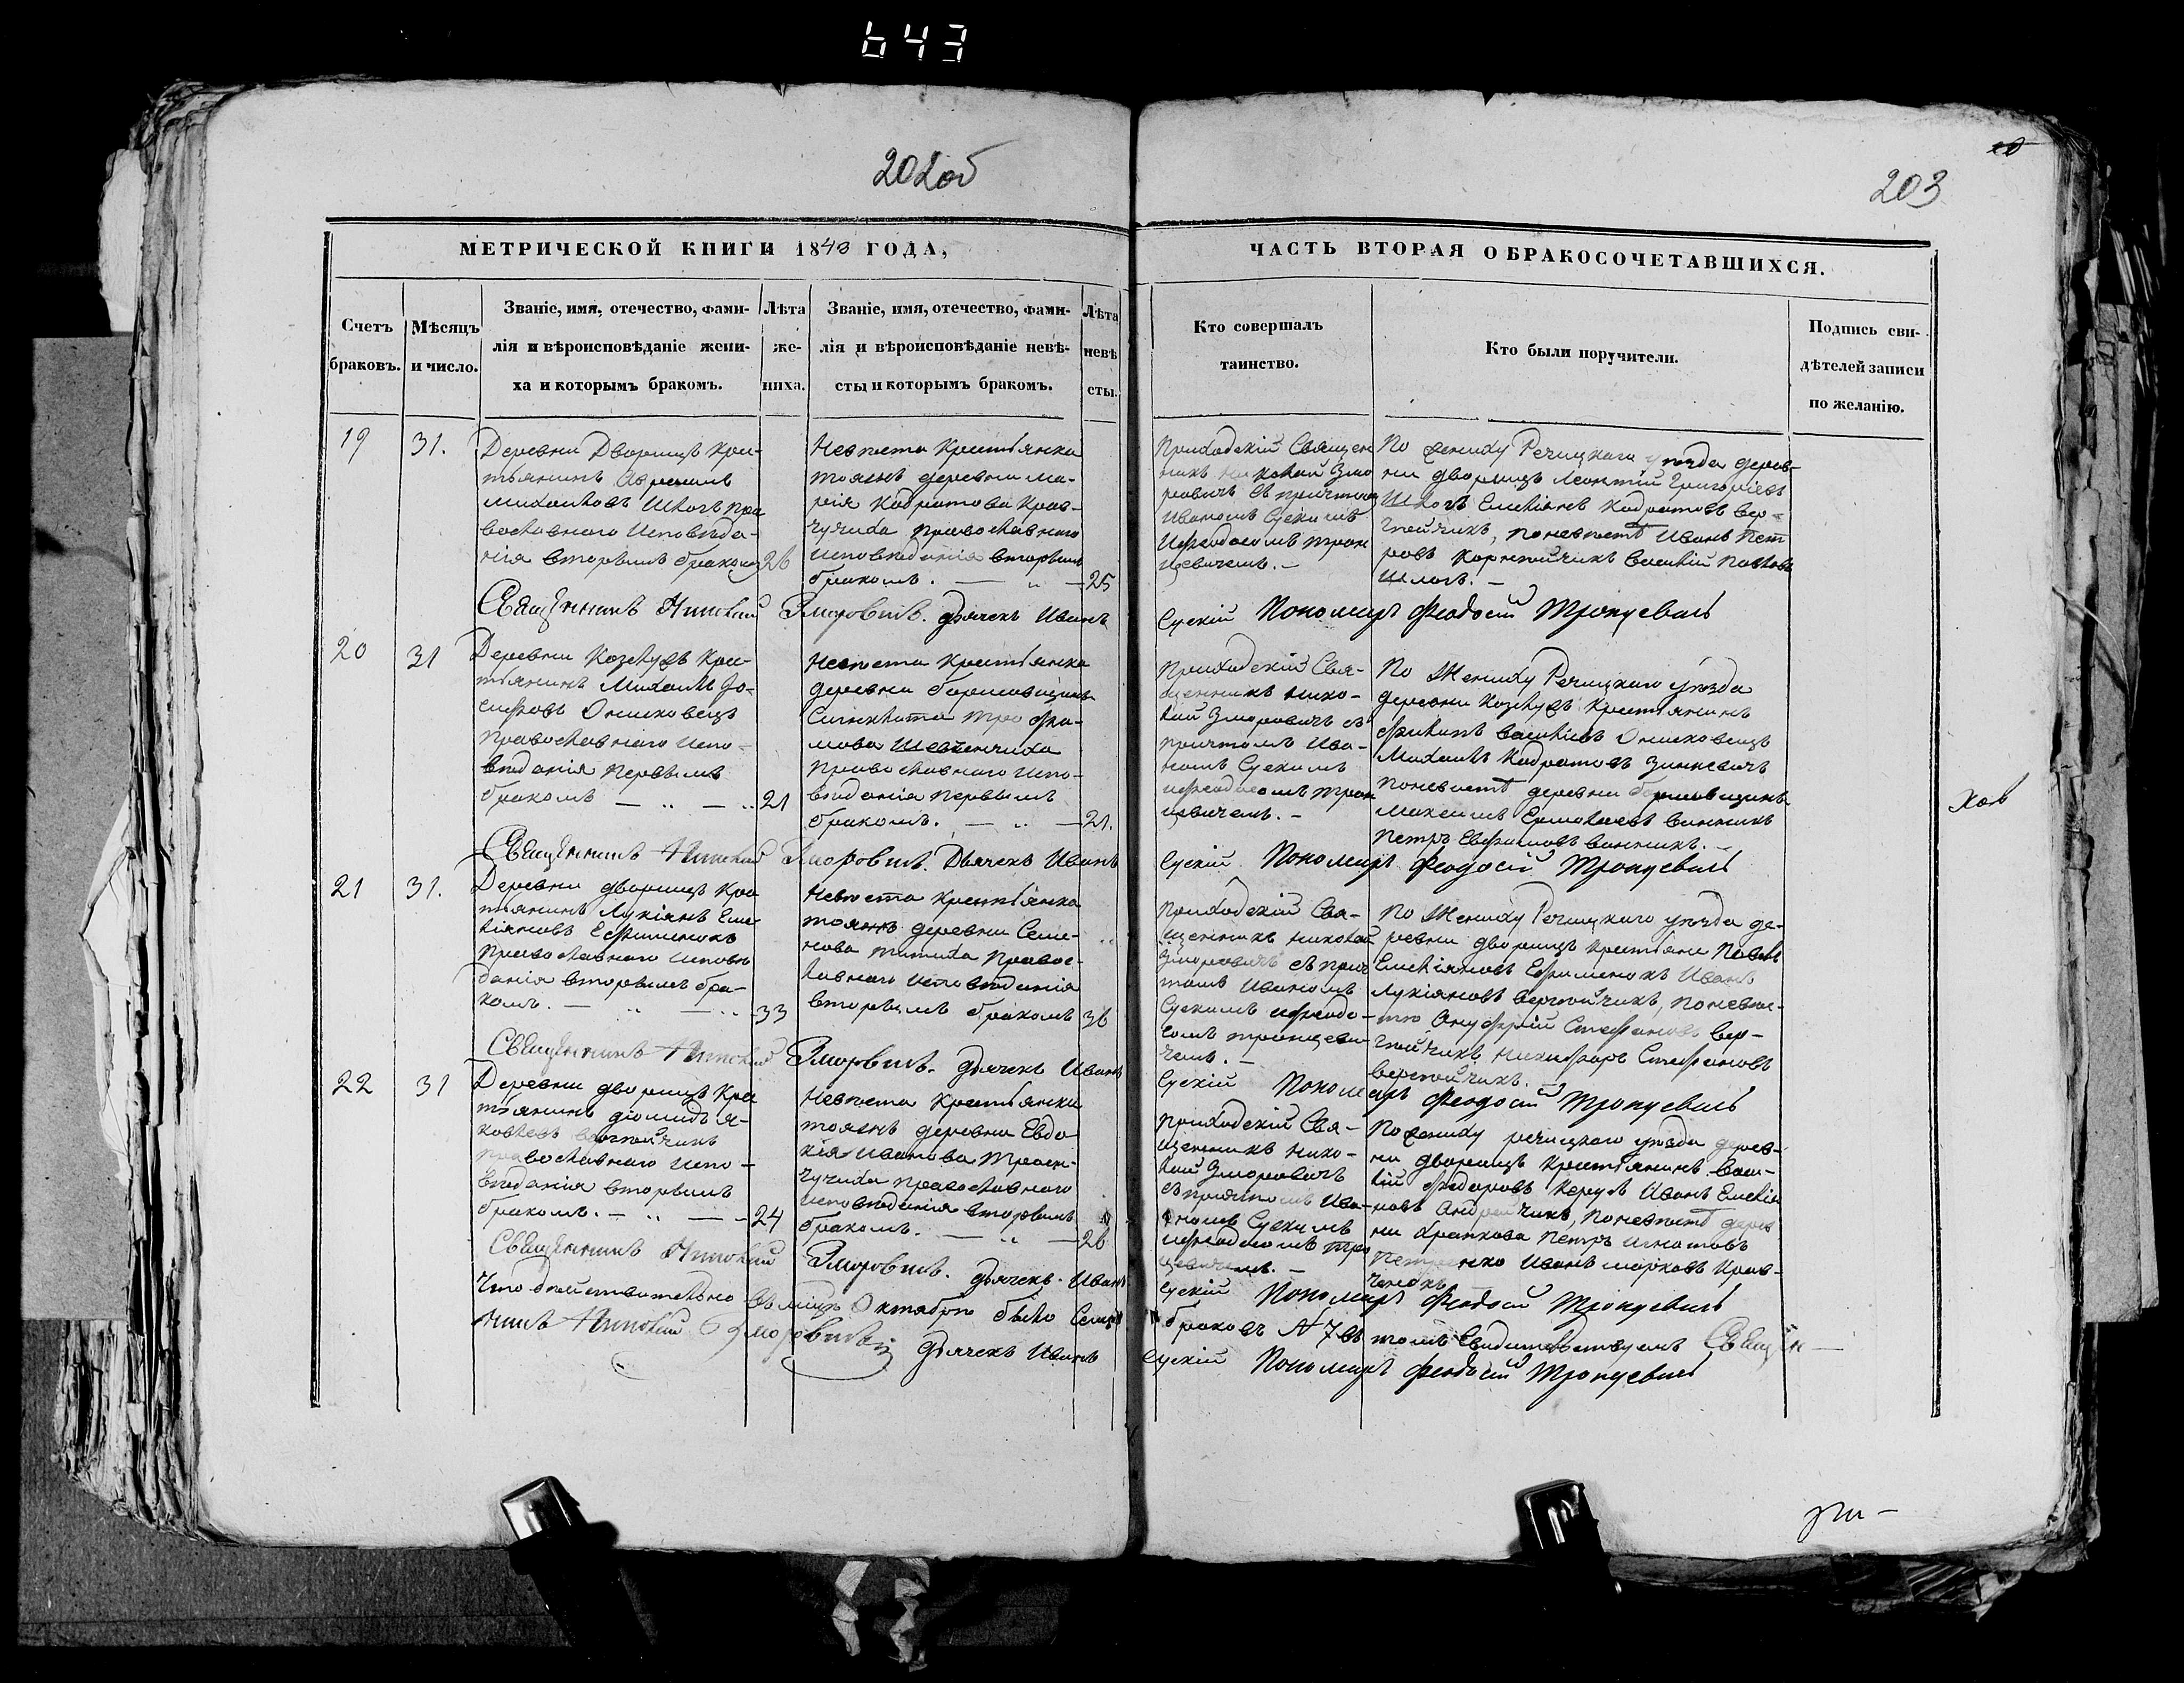 643
202об
203
МЕТРИЧЕСКОЙ КНИГИ 1843 ГОДА,
ЧАСТЬ ВТОРАЯ О БРАКОСОЧЕТАВШИХСЯ.
Счетъ
браковъ.
Мѣсяцъ
и число.
Званіе, имя, отечество, фами-
лія и вѣроисповѣданіе жени-
ха и которымъ бракомъ.
Лѣта
же-
ниха.
Званіе, имя, отечество, фами-
лія и вѣроисповѣданіе невѣ-
сты и которымъ бракомъ.
Лѣта
невѣ
сты.
Кто совершалъ
таинство.
Кто были поручители.
Подпись сви-
дѣтелей записи
по желанію.
19
31.
Деревни Дворищъ кре-
стьянинъ
Михайловъ пра
вославнаго исповѣда-
нія вторымъ бракомъ 26
Невѣста крестьянка
тояжъ деревни Ма-
рія Кодратова Крав-
чучиха православнаго
исповѣданія вторымъ
бракомъ. — " — 25
Приходскій Священ
никъ Николай Змо
ровичъ съ причтомъ
Иваномъ Сускимъ
иѲеодосомъ Трон
цевичемъ. —
По жениху Речицкаго уѣзда дерев-
ни дворищъ Леонтій Григоріевъ
Емельянъ Кодратовъ Вер-
, поневѣстѣ Иванъ Пет
ровъ Василій Павловъ
Священникъ Николай Зморовичъ. дьячекъ Иванъ
Сускій Пономаръ Феодосій Тронцевичъ
20
31
Деревни Козлуфъ кре-
стьянинъ Михаилъ Іо-
сифовъ Онисковецъ
православнаго испо-
вѣданія первымъ
бракомъ — " — " 21
Невѣста крестьянка
деревни
Трофи-
мова Шевченчиха
православнаго испо-
вѣданія первымъ
бракомъ. — " — 21.
Приходскій Свя-
щенникъ Нико-
лай Зморовичъ съ
причтомъ Ива-
номъ Сускимъ
иѲеодосомъ Трон
цевичемъ. —
По Жениху Речицкаго уѣзда
деревни Козлуфъ крестьянинъ
Филипъ Васильевъ Онисковецъ
Михаилъ Кодратовъ Зинкевичъ
поневѣстѣ деревни
Максимъ Ермолаевъ Винникъ
Петръ Евфимовъ Винникъ. —
Священникъ Николай Зморовичъ. Дьячекъ Иванъ
Сускій Пономаръ Феодосій Тронцевичъ
Хол
21
31.
Деревни дворищъ кре
стьянинъ Лукіянъ Еме-
ліяновъ Ефименокъ
православнаго исповѣ
данія вторымъ бра-
комъ. — " — " 33
Невѣста крестьянка
тояжъ деревни Семе-
нова Титиха правос-
лавнаго исповѣданія
вторымъ бракомъ 36
Приходскій Свя-
щенникъ Николай
Зморовичъ съ прич
томъ Иваномъ
Сускимъ иѲеодо-
сомъ Тронцеви
чемъ. —
По Жениху Речицкаго уѣзда де-
ревни дворищъ крестьяни Павелъ
Емеліяновъ Ефименокъ Иванъ
Лукіяновъ , поневѣс-
тѣ Онуфрій Стефановъ Вер-
Никифоръ Стефановъ
Священникъ Николай Зморовичъ. дьячекъ Иванъ
Сускій Пономаръ Феодосій Тронцевичъ
22
31
Деревни дворищъ кре
стьянинъ Діомидъ Я-
ковлевъ
православнаго испо-
вѣданія вторымъ
бракомъ. — " — 24
Невѣста крестьянка
тояжъ деревни Евдо
кія Иванова
православнаго
исповѣданія вторымъ
бракомъ. — " — 26
Приходскій Свя-
щенникъ Нико-
лай Зморовичъ
съ причтомъ Ива-
номъ Сускимъ
иѲеодосомъ Трон
цевичемъ. —
По жениху речицкаго уѣзда дерев-
ни дворищъ крестьянинъ Васи-
лій Федоровъ Иванъ Емелія
новъ Андрейчикъ, поневѣстѣ дерев
ни Храпкова Петръ Игнатовъ
Петренко Иванъ Марковъ Крав-
ченокъ
Священникъ Николай Зморовичъ. дьячекъ Иванъ
Сускій Пономаръ Феодосій Тронцевичъ
Что дѣйствительно въ мцѣ Октябрѣ было Семь
браковъ № 7 въ томъ Свидетельствуемъ Священ—
никъ Николай Зморовичъ дьячекъ Иванъ
Сускій Пономаръ Феодосій Тронцевичъ